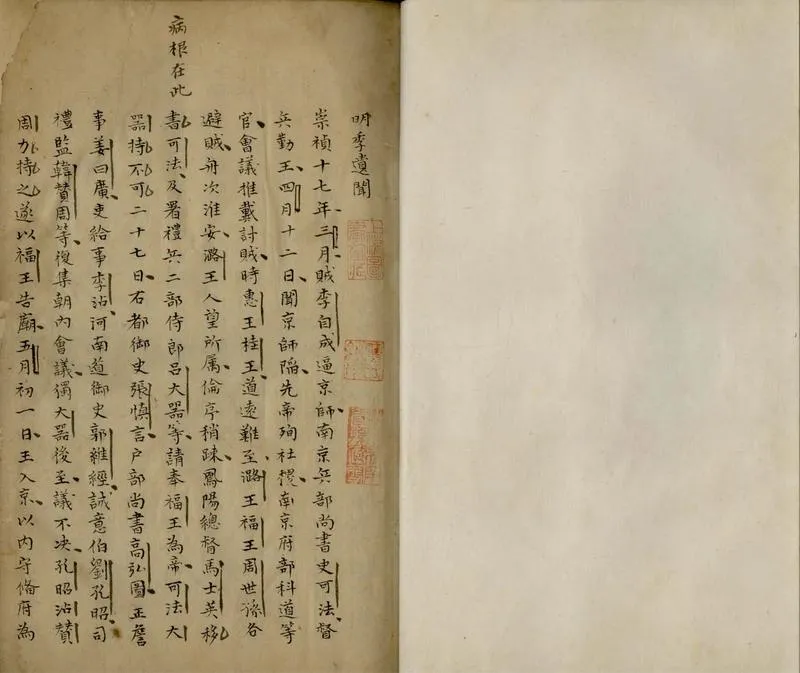 病根在此
明季遺聞
崇禎十七年三月賊李自成逼京師南京兵部尚書史可法督
兵勤王四月十二日聞京師陷先帝殉社稷南京府部科道等
官會議推戴討賊時惠王桂王道遠難至潞王福王周世孫各
避賊舟次淮安潞王人望所属倫序稍踈鳳陽總督馬士英移
書可法及署禮兵二部侍郎呂大器等請奉福王為帝可法大
器持不可二十七日右都御史張慎言户部尚書高弘圖正詹
事姜曰廣吏給事李沾河南道御史郭維經誠意伯劉孔昭司
禮監韓賛周等復集朝內會議獨大器後至議不决孔昭沾賛
周力持之遂以福王告廟五月初一日王入京以內守備府為